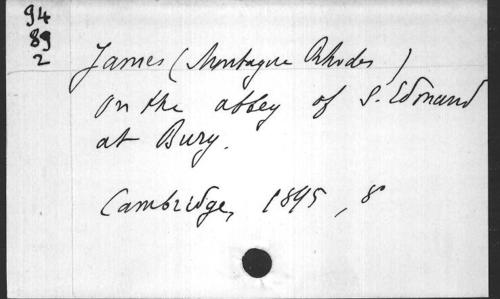 94
89
2
James (Montague Rhodes)
On the abbey of S. Edmund
at Bury.
Cambridge, 1895, 8°